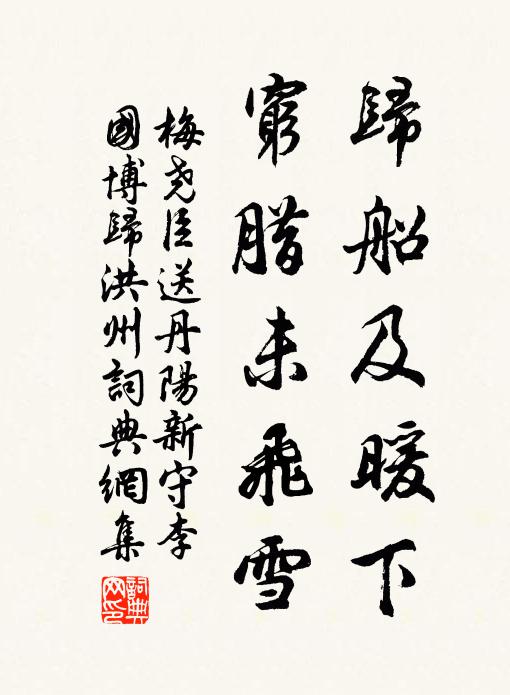 歸船及暖下
窮腊未飛雪
梅尧臣送丹陽新守李
國博歸洪州詞典網集
詞典
网印